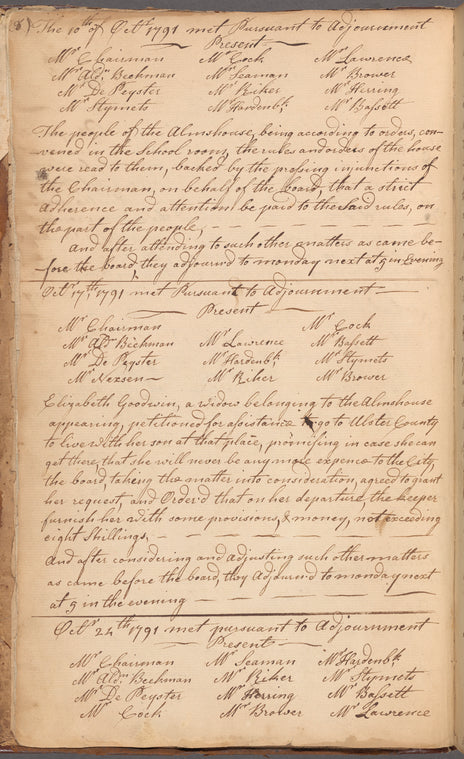 8) The 10th of Octr 1791 met Pursuant to Adjournment
Present
Mr Chairman Mr Cock Mr Lawrence
Mr Aldn Beekman Mr Seaman Mr Brower
Mr De Peyster Mr Riker Mr Herring
Mr Stymets Mr Hardenbk Mr Bassett
The people of the Almshouse, being according to orders, con-
vened in the School room, the rules and orders of the house
were read to them, backed by the pressing injunctions of
the Chairman, on behalf of the board, that a strict
Adherence and attention be paid to the said rules, on
the part of the people,
And after attending to such other matters as came be-
fore the board, they adjournd to monday next at 5 in Evening
Octr 17th 1791 met Pursuant to Adjournment
Present
Mr Chairman Mr Cock
Mr Aldn Beekman Mr Lawrence Mr Bassett
Mr De Peyster Mr Hardenbk Mr Stymets
Mr Nexsen Mr Riker Mr Brower
Elizabeth Goodwin, a widow belonging to the Almshouse
appearing, petitioned for assistance to go to Ulster County
to live with her son at that place, promising in case she can
get there, that she will never be any more expence to the City,
the board, taking the matter into consideration, agreed to grant
her request, and Order'd that on her departure, the keeper
furnish her with some provisions, & money, not exceeding
eight Shillings,
And after considering and adjusting such other matters
as came before the board, they Adjournd to monday next
at 5 in the evening
Octr 24th 1791 met pursuant to Adjournment
Present
Mr Chairman Mr Seaman Mr Hardenbk
Mr Aldn Beekman Mr Riker Mr Stymets
Mr De Peyster Mr Herring Mr Bassett
Mr Cock Mr Brower Mr Lawrence